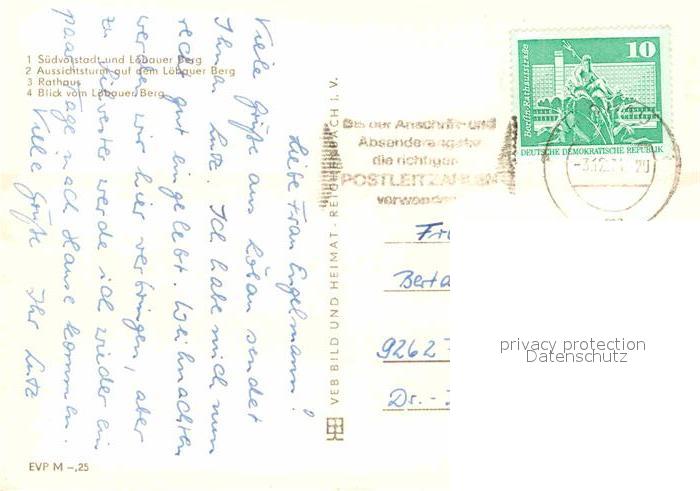 1 Südvorstadt und Löbauer Berg
2 Aussichtsturm auf dem Löbauer Berg
3 Rathaus
4 Blick vom Löbauer Berg
Liebe Frau Engelmann!
Viele Grüße aus Löbau sendet
Ihnen Lutz. Ich habe mich nun
recht gut eingelebt. Weihnachten
werden wir hier verbringen, aber
zu Silvester werde ich wieder ein
paar Tage nach Hause kommen.
Viele Grüße Ihr Lutz
EVP M –,25
VEB BILD UND HEIMAT · REICHENBACH I. V.
Bei der Anschrift und
Absenderangabe
die richtigen
POSTLEITZAHLEN
verwenden
Berlin, Rathausstraße
10
DEUTSCHE DEMOKRATISCHE REPUBLIK
Berta
9262
Dr. -
privacy protection
Datenschutz